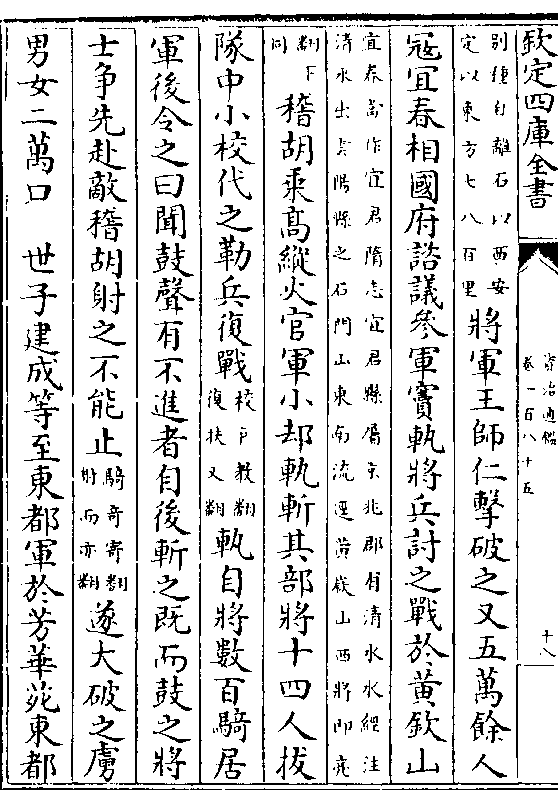 欽定四庫全書
資治通鑑
卷一百八十五
十八
別種自離石以西安
定以東方七八百里
將軍王師仁擊破之又五萬餘人
冦宜春相國府諮議參軍竇軌將兵討之戰於黄欽山
宜春當作宜君隋志宜君縣屬京兆郡有清水水經注
清水出雲陽縣之石門山東南流逕黄嶔山西將即亮
翻下
同
稽胡乗髙縱火官軍小却軌斬其部將十四人拔
隊中小校代之勒兵復戰
校户教翻
復扶又翻
軌自將數百騎居
軍後令之曰聞鼓聲有不進者自後斬之既而鼓之將
士争先赴敵稽胡射之不能止
騎奇寄翻
射而亦翻
遂大破之虜
男女二萬口 世子建成等至東都軍於芳華苑東都